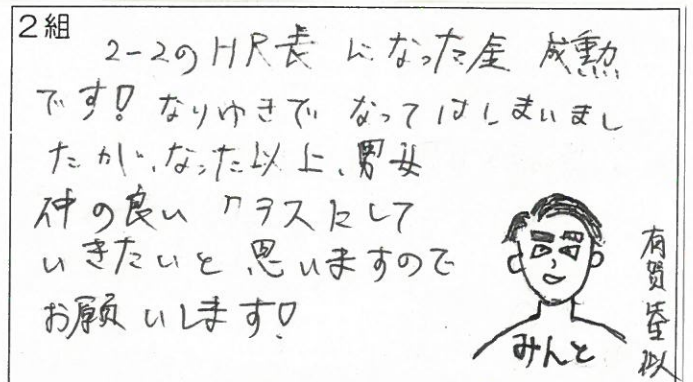 2組
2-2のHR長になった金 成勲
です!なりゆきでなってはしまいまし
たが、なった以上、男女
仲の良いクラスにして
いきたいと思いますので
お願いします!
みんと
有賀